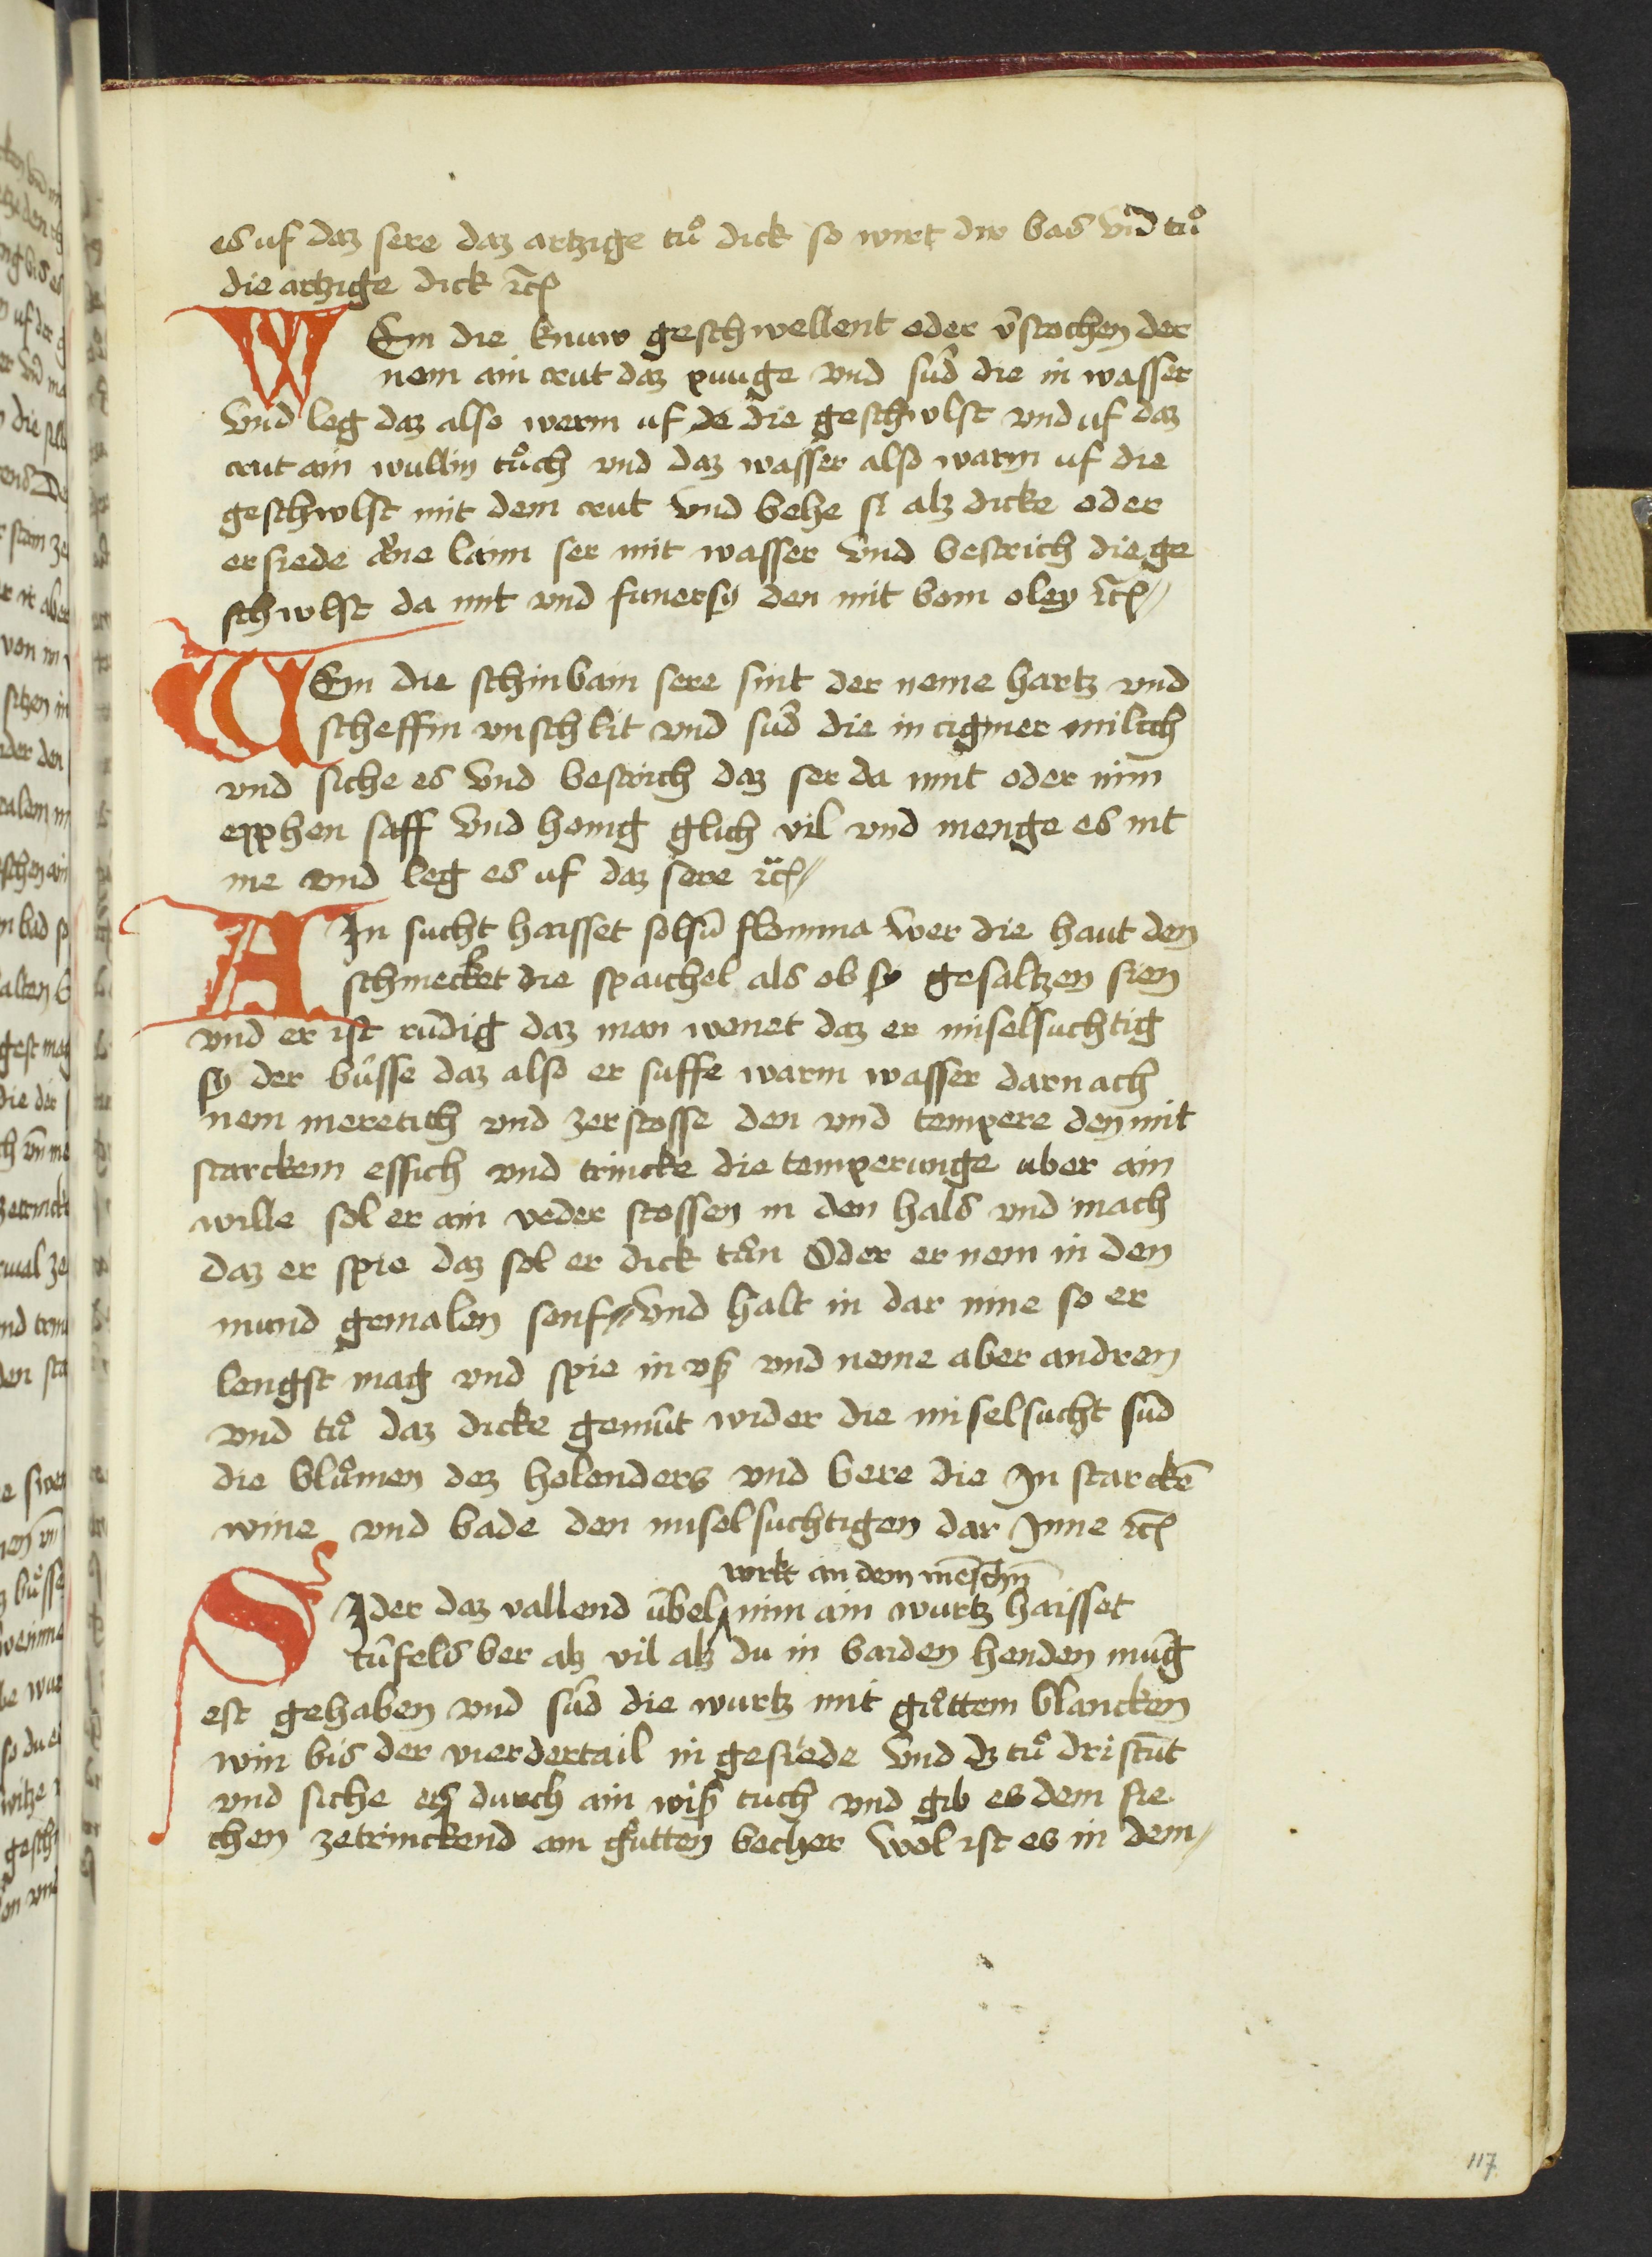 es uf daz sere daz artzige tuͦ dick so wirt dir bas vnd tuͦ
die artzige dick ꝛcͣ
WEm die knuw geschwellent oder v̄stochen der
nem ain crut daz puuge vnd sud die in wasser
vnd leg daz also werm uf de die geschwlst vnd uf daz
crut ain wullin tuͦch vnd daz wasser also warm uf die
geschwlst mit dem crut vnd behe si alz dicke oder
ersiede ane laim ser mit wasser vnd bestrich die ge
schwlst da mit vnd den mit bom oley ꝛcͣ
WEm die schinbain sere sint der neme hartz vnd
scheffin vnschlit vnd sud die in tigmer milich
vnd siche es vnd bestrich daz ser da mit oder nim
epphen saff vnd honig glich vil vnd menge es int
me vnd leg es uf daz sere ꝛcͣ
AIn sucht haisset solsū floumna wer die haut den
schmecket die spaichel als ob sy gesaltzen sien
vnd er ist rudig daz man wenet daz er miselsuchtig
sy der busse daz also er suffe warm wasser darnach
nem meretich vnd zerstosse den vnd tempere den mit
starckem essich vnd trincke die temperunge uber ain
wille sol er ain veder stossen in den hals vnd mach
daz er spie daz sol er dick tuͦn Oder er nem in den
mund gemalen senf vnd halt in dar inne so er
lengst mag vnd spie in vß vnd neme aber andren
vnd tuͦ daz dicke gemut wider die miselsucht sud
die bluͦmen dez holenders vnd bere die In starckē
wine vnd bade den miselsuchtigen dar Inne ꝛcͣ
wrkt an dem mēschn̄
SIder daz vallend ubel nim ain wurtz haisset
tufels ber alz vil alz du in baiden henden mug
est gehaben vnd sud die wurtz mit guͦttem blancken
win bis der vierdertail in gesiede vnd dz tuͦ dristūt
vnd siche es durch ain wiß tuch vnd gib es dem sie
chen zetrinckend ain guͦtten becher wol ist es in dem
117